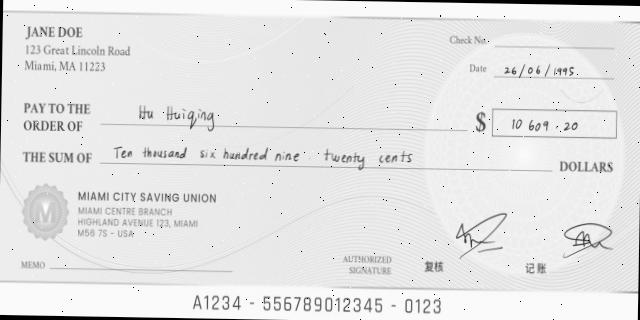 JANE DOE
123 Great Lincoln Road
Miami, MA 11223
Check No.
Date 26/06/1995.
PAY TO THE
ORDER OF Hu Huiqing
$ 10 609.20
THE SUM OF Ten thousand six hundred nine twenty cents DOLLARS
MIAMI CITY SAVING UNION
MIAMI CENTRE BRANCH
HIGHLAND AVENUE 123, MIAMI
M56 7S - USA
M
MEMO
AUTHORIZED
SIGNATURE
复核
记账
A1234 - 556789012345 - 0123